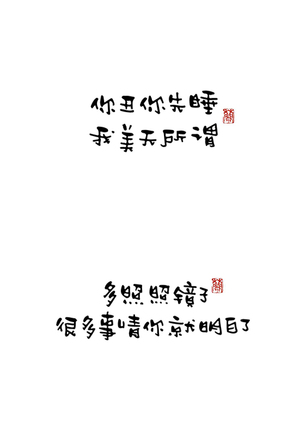 你丑你先睡
我美无所谓
多照照镜子
很多事情你就明白了